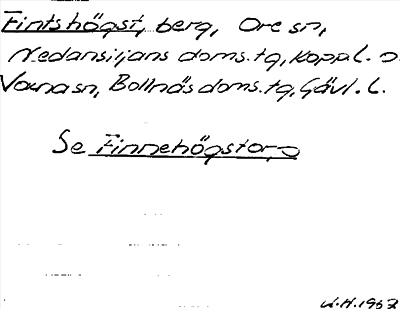 Fintshögst, berg, Ore sn,
Nedansiljans doms.tg, Koppl. o
Voxna sn, Bollnäs doms.tg, Gävl. l.
Se Finnehögstorp
K.H. 1967